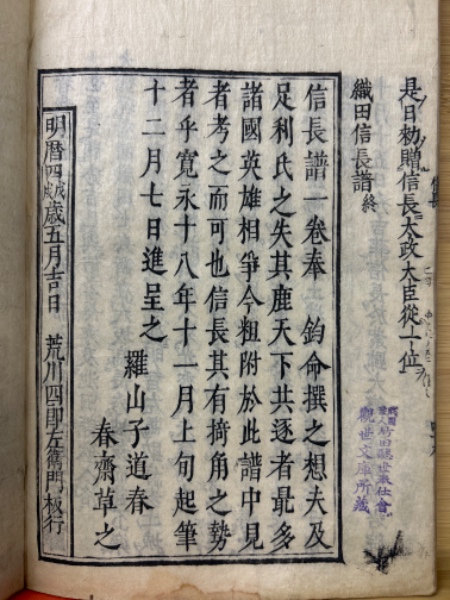 是日勅贈信長太政大臣從一位
織田信長譜終
信長譜一卷奉　鈞命撰之想夫及
足利氏之失其鹿天下共逐者最多
諸國英雄相爭今粗附於此譜中見
者考之而可也信長其有掎角之勢
者乎寛永十八年十一月上旬起筆
十二月七日進呈之
羅山子道春
春齋草之
明暦四戊戌歳五月吉日　荒川四郎左衞門板行
觀世文庫所藏